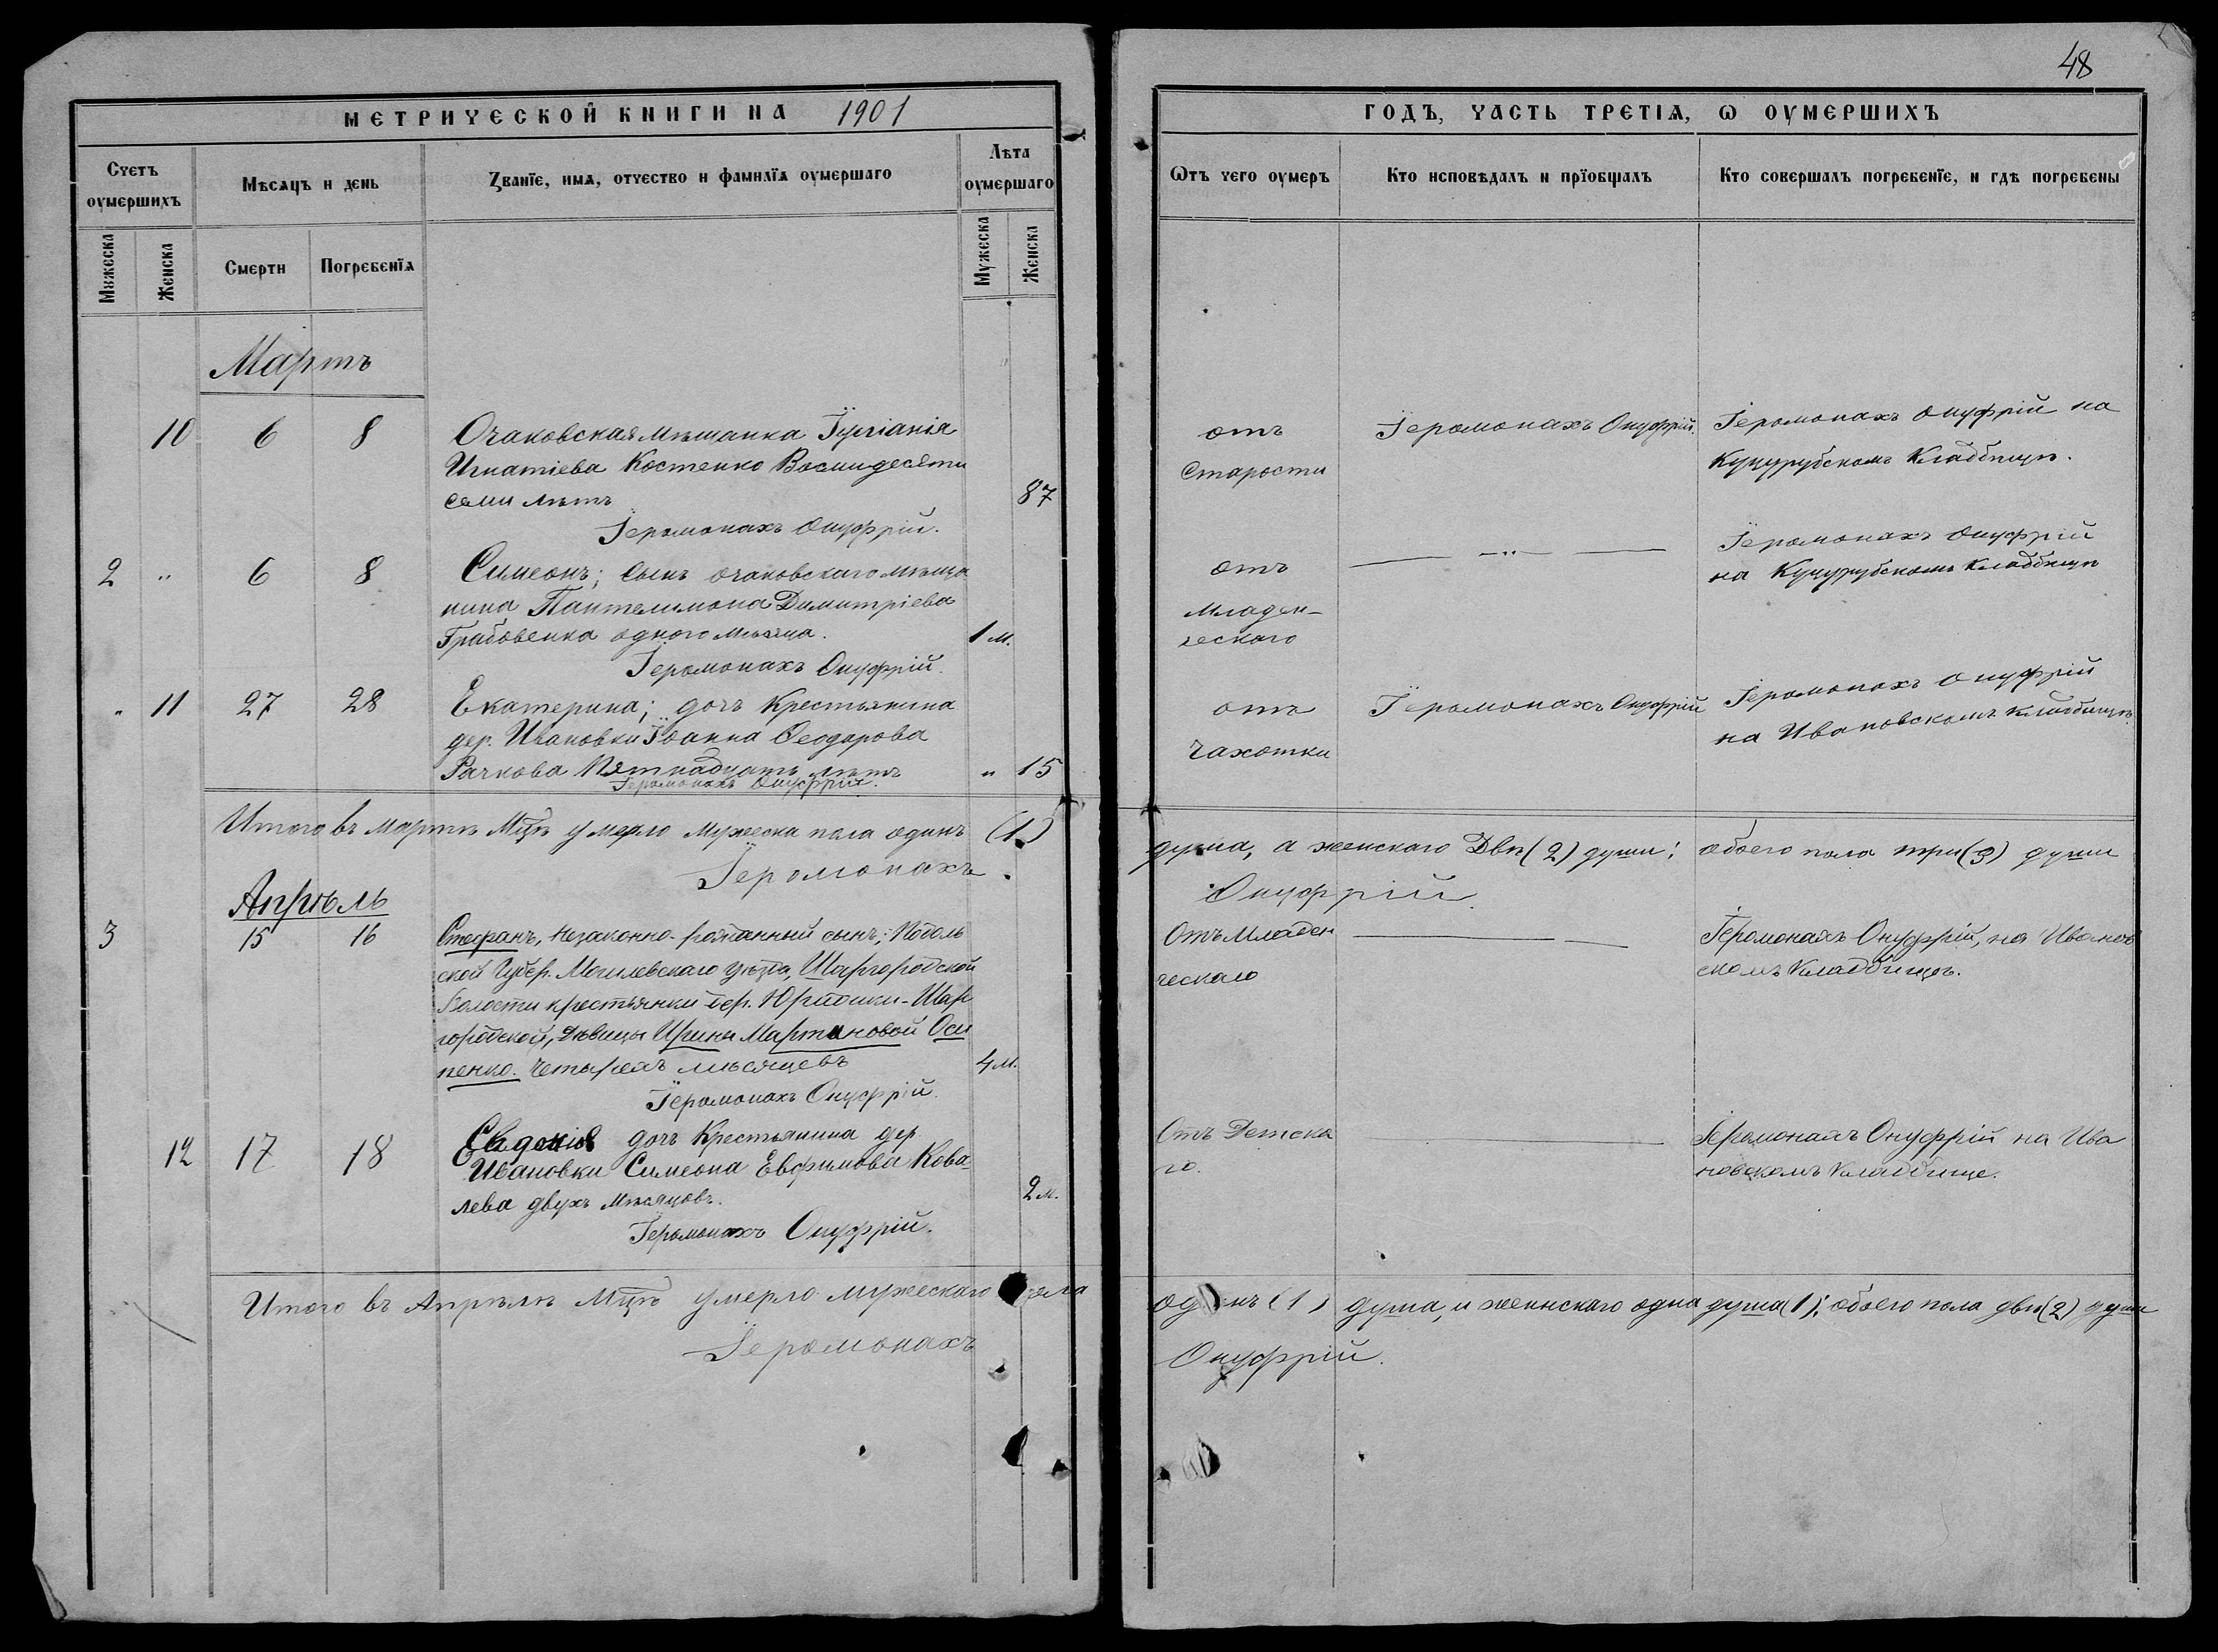 48
МЕТРИЧЕСКОЙ КНИГИ НА 1901
ГОДЪ, ЧАСТЬ ТРЕТІѦ, Ѡ ОУМЕРШИХЪ
Счетъ оумершихъ
Мѣсяцъ и день
Званїе, имѧ, отчество и фамилїѧ оумершаго
Лѣта оумершаго
Ѿтъ чего оумеръ
Кто исповѣдалъ и прїобщалъ
Кто совершалъ погребенїе, и гдѣ погребены
Мужеска
Женска
Смерти
Погребенїѧ
Мужеска
Женска
Мартъ
10 6 8
Очаковская мѣщанка Іуліанія
Игнатіева Костенко Восмидесяти
семи лѣтъ
87
Іеромонахъ Онуфрій.
отъ
Старости
Іеромонахъ Онуфрій.
Іеромонахъ Онуфрій на
Куцурубскомъ Кладбищѣ.
2 " 6 8
Симеонъ; сынъ очаковскаго мѣща
нина Пантелимона Димитріева
Грабовенка одного мѣсяца.
1 м.
Іеромонахъ Онуфрій.
отъ
Младен-
ческаго
— " —
Іеромонахъ Онуфрій
на Куцурубскомъ Кладбищѣ
" 11 27 28
Екатерина; дочь Крестьянина
дер. Ивановки Іоанна Ѳеодорова
Рачкова Пятнадцать лѣтъ
" 15
Іеромонахъ Онуфрій.
отъ
Чахотки
Іеромонахъ Онуфрій
Іеромонахъ Онуфрій
на Ивановскомъ кладбищѣ.
Итого въ мартѣ Мцѣ умерло мужеска пола одинъ (1)
душа, а женскаго Двѣ (2) души; обоего пола три (3) души
Іеромонахъ
Онуфрій.
Апрѣль
3 15 16
Стефанъ, незаконно-рожданный сынъ; Подоль
ской Губер. Могилевскаго уѣзда, Шаргородской
Волости крестьянки дер. Юрковки-Шар
городской, дѣвицы Ирины Мартиновой Оси
пенко. Четырехъ мѣсяцевъ
4 м.
Іеромонахъ Онуфрій.
Отъ Младен
ческаго
Іеромонахъ Онуфрій, на Иванов
скомъ Кладбищѣ.
12 17 18
Евдокія дочь Крестьянина дер
Ивановки Симеона Евфимова Кова
лева двухъ мѣсяцовъ.
2 м.
Іеромонахъ Онуфрій.
Отъ Детска
го.
Іеромонахъ Онуфрій на Ива
новскомъ Кладбище.
Итого въ Апрѣлѣ Мцѣ умерло мужескаго пола
одинъ (1) душа, и женнскаго одна душа (1); обоего пола двѣ (2) души
Іеромонахъ
Онуфрій.